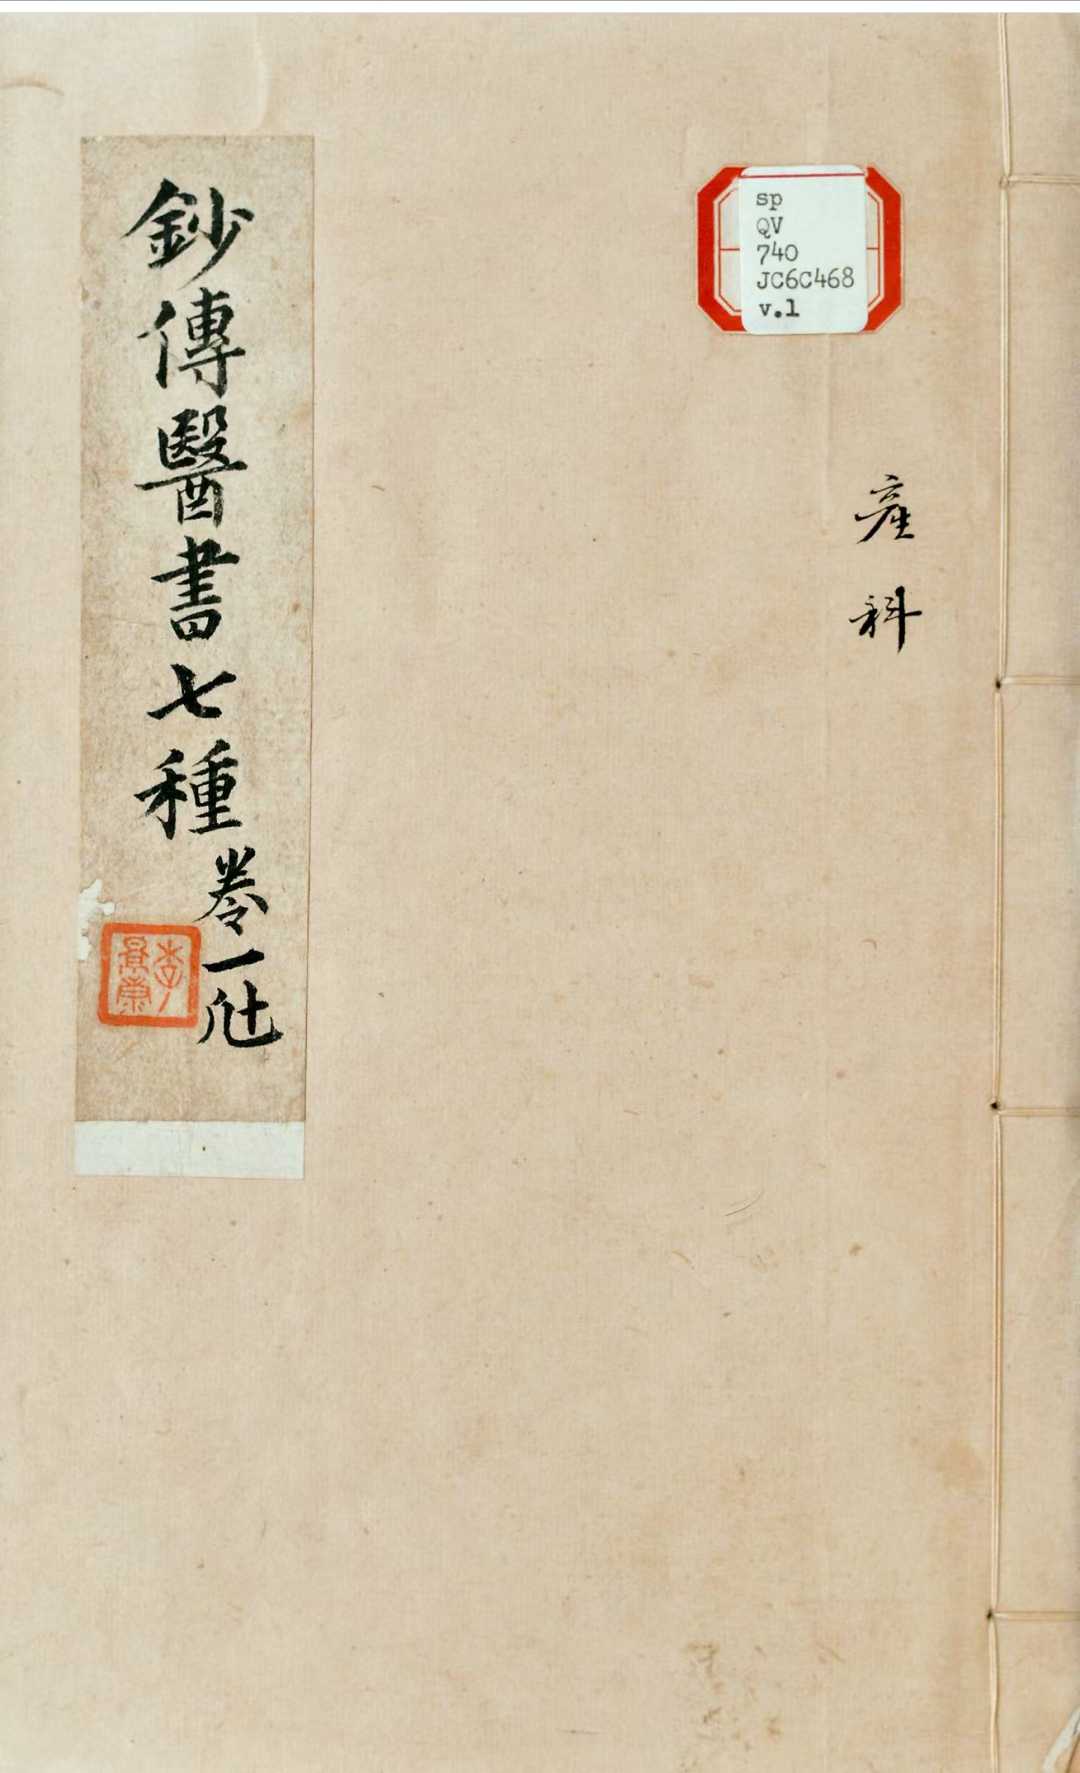 sp
QV
740
JC6C468
v.1
產科
鈔傳醫書七種
卷一